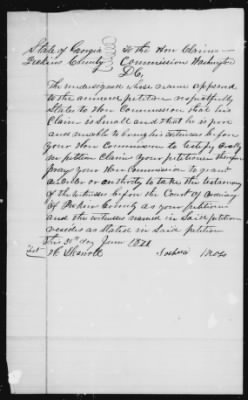 State of Georgia To the Hon Claims
Pickens County Commission Washington
D.C.
The undersigned whose name appeared
to the annexed petition respectfully
States to Hon Commission that his
Claim is Small and that he is poor
and unable to bring his witnesses before
your Hon Commission to testify
petition Claim your petitioner therefore
prays your Hon Commission to grant
an order or authority to take the testimony
of the witnesses before the Court of Ordinary
of Pickens County as your petitioner
and the witnesses named in Said petition
resides as Stated in Said petition
This day June 1871